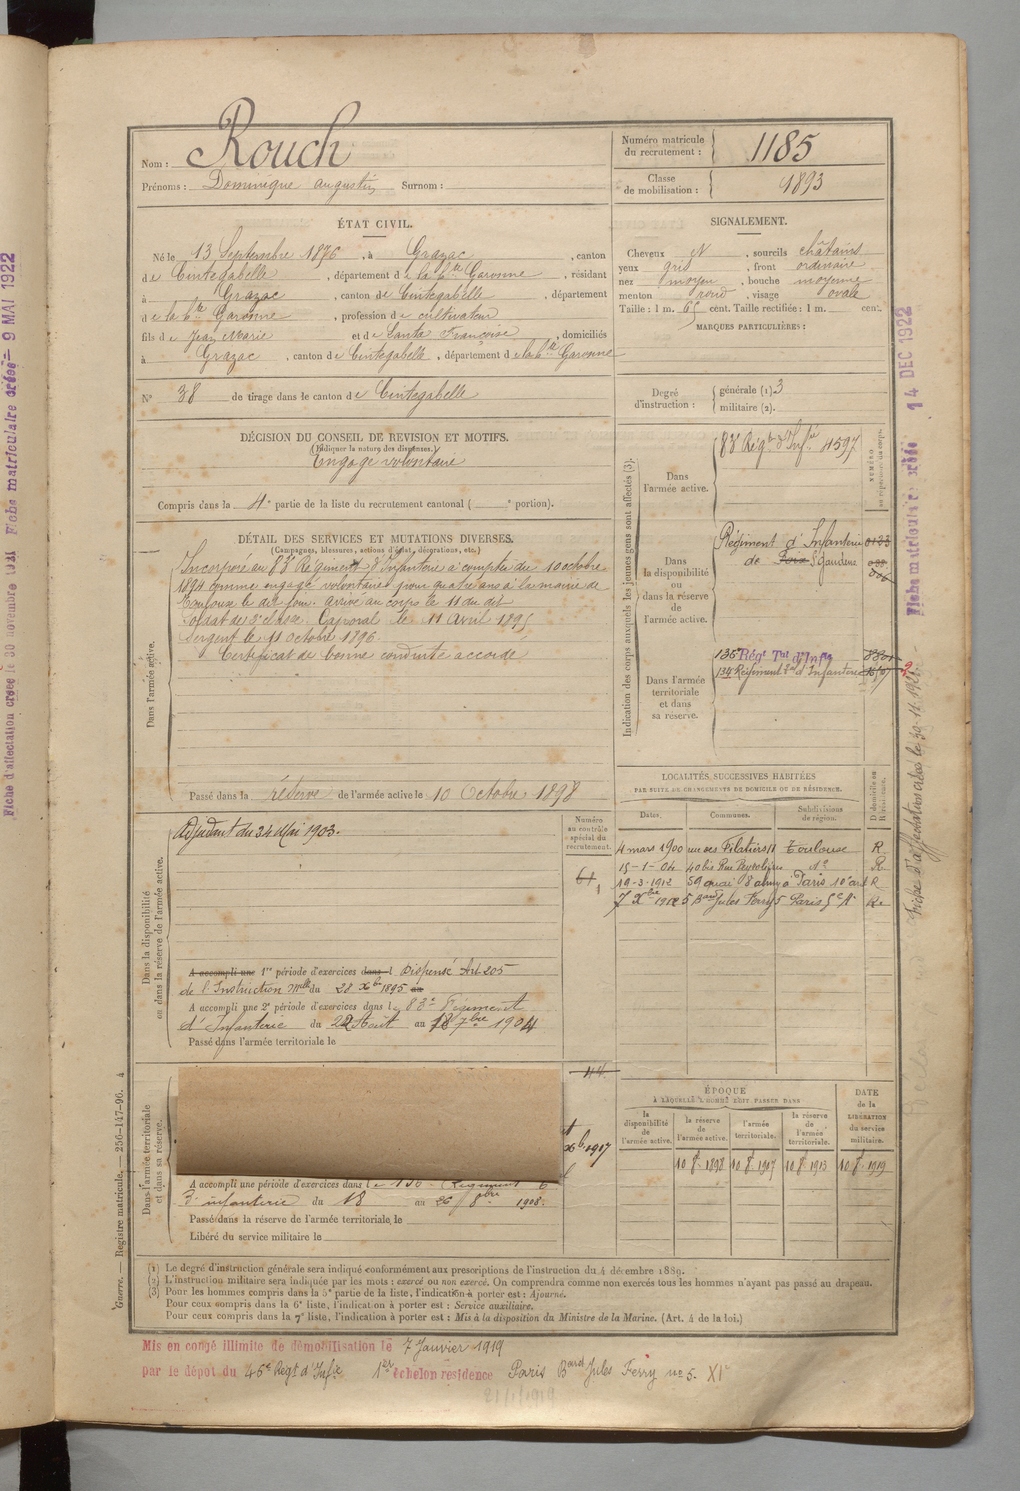 Nom : Rouch
Prénoms : Dominique Augustin Surnom :
Numéro matricule du recrutement : 1185
Classe de mobilisation : 1893
ÉTAT CIVIL.
Né le 13 Septembre 1876, à Grazac, canton
de Cintegabelle, département de la hte Garonne, résidant
à Grazac, canton de Cintegabelle, département
de la hte Garonne, profession de cultivateur
fils de Jean Marie et de Santa Françoise, domiciliés
à Grazac, canton de Cintegabelle, département de la hte Garonne
SIGNALEMENT.
Cheveux N, sourcils châtains
yeux gris, front ordinaire
nez moyen, bouche moyenne
menton rond, visage ovale
Taille : 1 m. 65 cent. Taille rectifiée : 1 m. cent.
MARQUES PARTICULIÈRES :
N° 38 de tirage dans le canton de Cintegabelle
Degré d'instruction : générale (1). 3
militaire (2).
DÉCISION DU CONSEIL DE REVISION ET MOTIFS.
(Indiquer la nature des dispenses.)
Engagé volontaire
Compris dans la 4e partie de la liste du recrutement cantonal ( e portion).
DÉTAIL DES SERVICES ET MUTATIONS DIVERSES.
(Campagnes, blessures, actions d'éclat, décorations, etc.)
Dans l'armée active.
Incorporé au 83e Régiment d'Infanterie à compter du 10 octobre
1894 comme engagé volontaire pour quatre ans à la mairie de
Toulouse le dit jour. Arrivé au corps le 11 du dit
soldat de 2e classe. Caporal le 11 Avril 1895
Sergent le 11 octobre 1896.
Certificat de bonne conduite accordé
Passé dans la réserve de l'armée active le 10 Octobre 1898
Indication des corps auxquels les jeunes gens sont affectés (3).
NUMÉRO au répertoire du corps.
Dans l'armée active.
83e Régt d'Infie 4597
Dans la disponibilité ou dans la réserve de l'armée active.
Régiment d'Infanterie
de Foix St Gaudens
Dans l'armée territoriale et dans sa réserve.
135e Régt Tal d'Infie
134 Régiment Tal d'Infanterie
LOCALITÉS SUCCESSIVES HABITÉES
PAR SUITE DE CHANGEMENTS DE DOMICILE OU DE RÉSIDENCE.
Dates. Communes. Subdivisions de région. D domicile ou R résidence.
4 mars 1900 rue des Filatiers 11 Toulouse R
15-1-04 40 bis Rue Peyrolières do R
19-3-1912 59 quai Valmy à Paris 10e art R
7 Xbre 1912 5 Bard Jules Ferry 5 Paris R
Numéro au contrôle spécial du recrutement.
61
Dans la disponibilité ou dans la réserve de l'armée active.
Adjudant du 24 Mai 1903.
A accompli une 1re période d'exercices dans l Dispensé Art 205
de l'Instruction Mlle du 28 Xbre 1895 au
A accompli une 2e période d'exercices dans le 83e Régiment
d'Infanterie du 22 Août au 18 7bre 1904
Passé dans l'armée territoriale le
Dans l'armée territoriale et dans sa réserve.
1917
A accompli une période d'exercices dans le
d'infanterie du 18 au 26 8bre 1908.
Passé dans la réserve de l'armée territoriale le
Libéré du service militaire le
ÉPOQUE
À LAQUELLE L'HOMME DOIT PASSER DANS
la disponibilité de l'armée active. la réserve de l'armée active. l'armée territoriale. la réserve de l'armée territoriale.
DATE de la LIBÉRATION du service militaire.
10 8bre 1898 10 8bre 1907 10 8bre 1913 10 8bre 1919
(1) Le degré d'instruction générale sera indiqué conformément aux prescriptions de l'instruction du 4 décembre 1889.
(2) L'instruction militaire sera indiquée par les mots : exercé ou non exercé. On comprendra comme non exercés tous les hommes n'ayant pas passé au drapeau.
(3) Pour les hommes compris dans la 5e partie de la liste, l'indication à porter est : Ajourné.
Pour ceux compris dans la 6e liste, l'indication à porter est : Service auxiliaire.
Pour ceux compris dans la 7e liste, l'indication à porter est : Mis à la disposition du Ministre de la Marine. (Art. 4 de la loi.)
Mis en congé illimité de démobilisation le 7 Janvier 1919
par le dépôt du 46e Régt d'Infie 1er échelon résidence Paris Bard Jules Ferry no 5. XIe
Guerre. — Registre matricule. — 256-147-96. 4
Fiche d'affectation créée le 30 novembre 1921 Fiche matriculaire créée 9 MAI 1922
Fiche matriculaire créée 14 DEC 1922
Fiche d'affectation créée le 30.11.1921